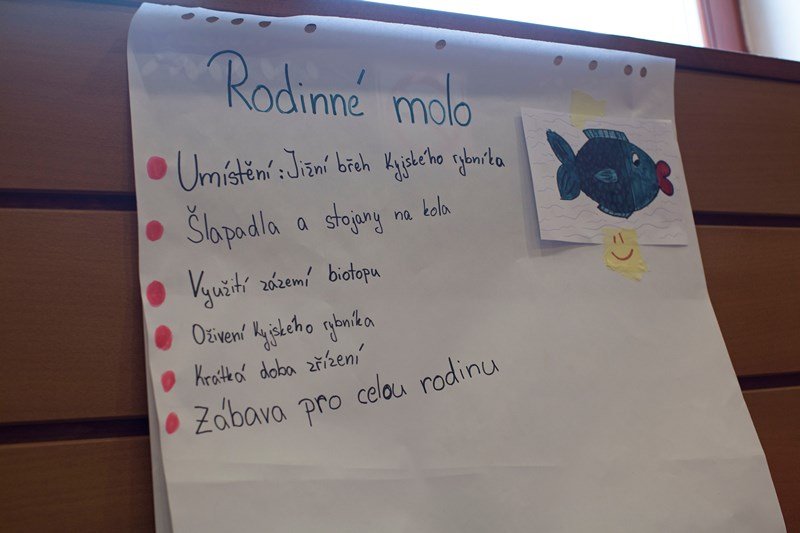 Rodinné molo
Umístění: Jižní břeh Kyjského rybníka
Šlapadla a stojany na kola
Využití zázemí biotopu
Oživení Kyjského rybníka
Krátká doba zřízení
Zábava pro celou rodinu